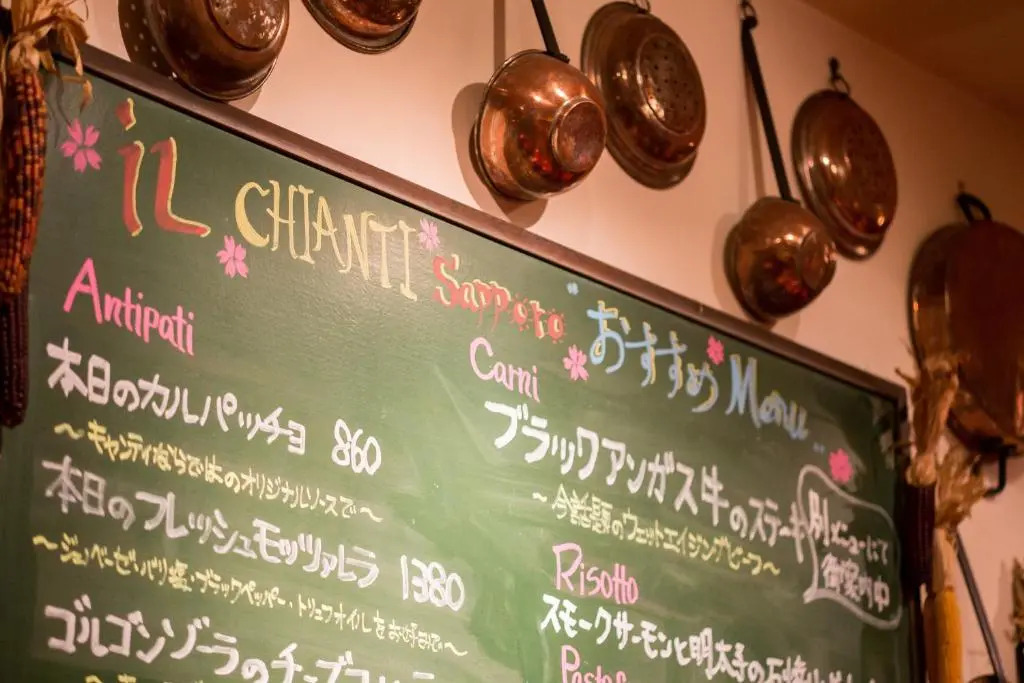 iL CHIANTI Sapporo "おすすめ Menu"
Antipati
本日のカルパッチョ 860
～キャンティならではのオリジナルソースで～
本日のフレッシュモッツァレラ 1380
～ジェノベーゼ・バリ塩・ブラックペッパー・トリュフオイルをお好みで～
ゴルゴンゾーラのチーズ
Carni
ブラックアンガス牛のステーキ
～今話題のウェットエイジングビーフ～
別メニューにて
御案内中
Risotto
スモークサーモンと明太子の石焼
Pasta